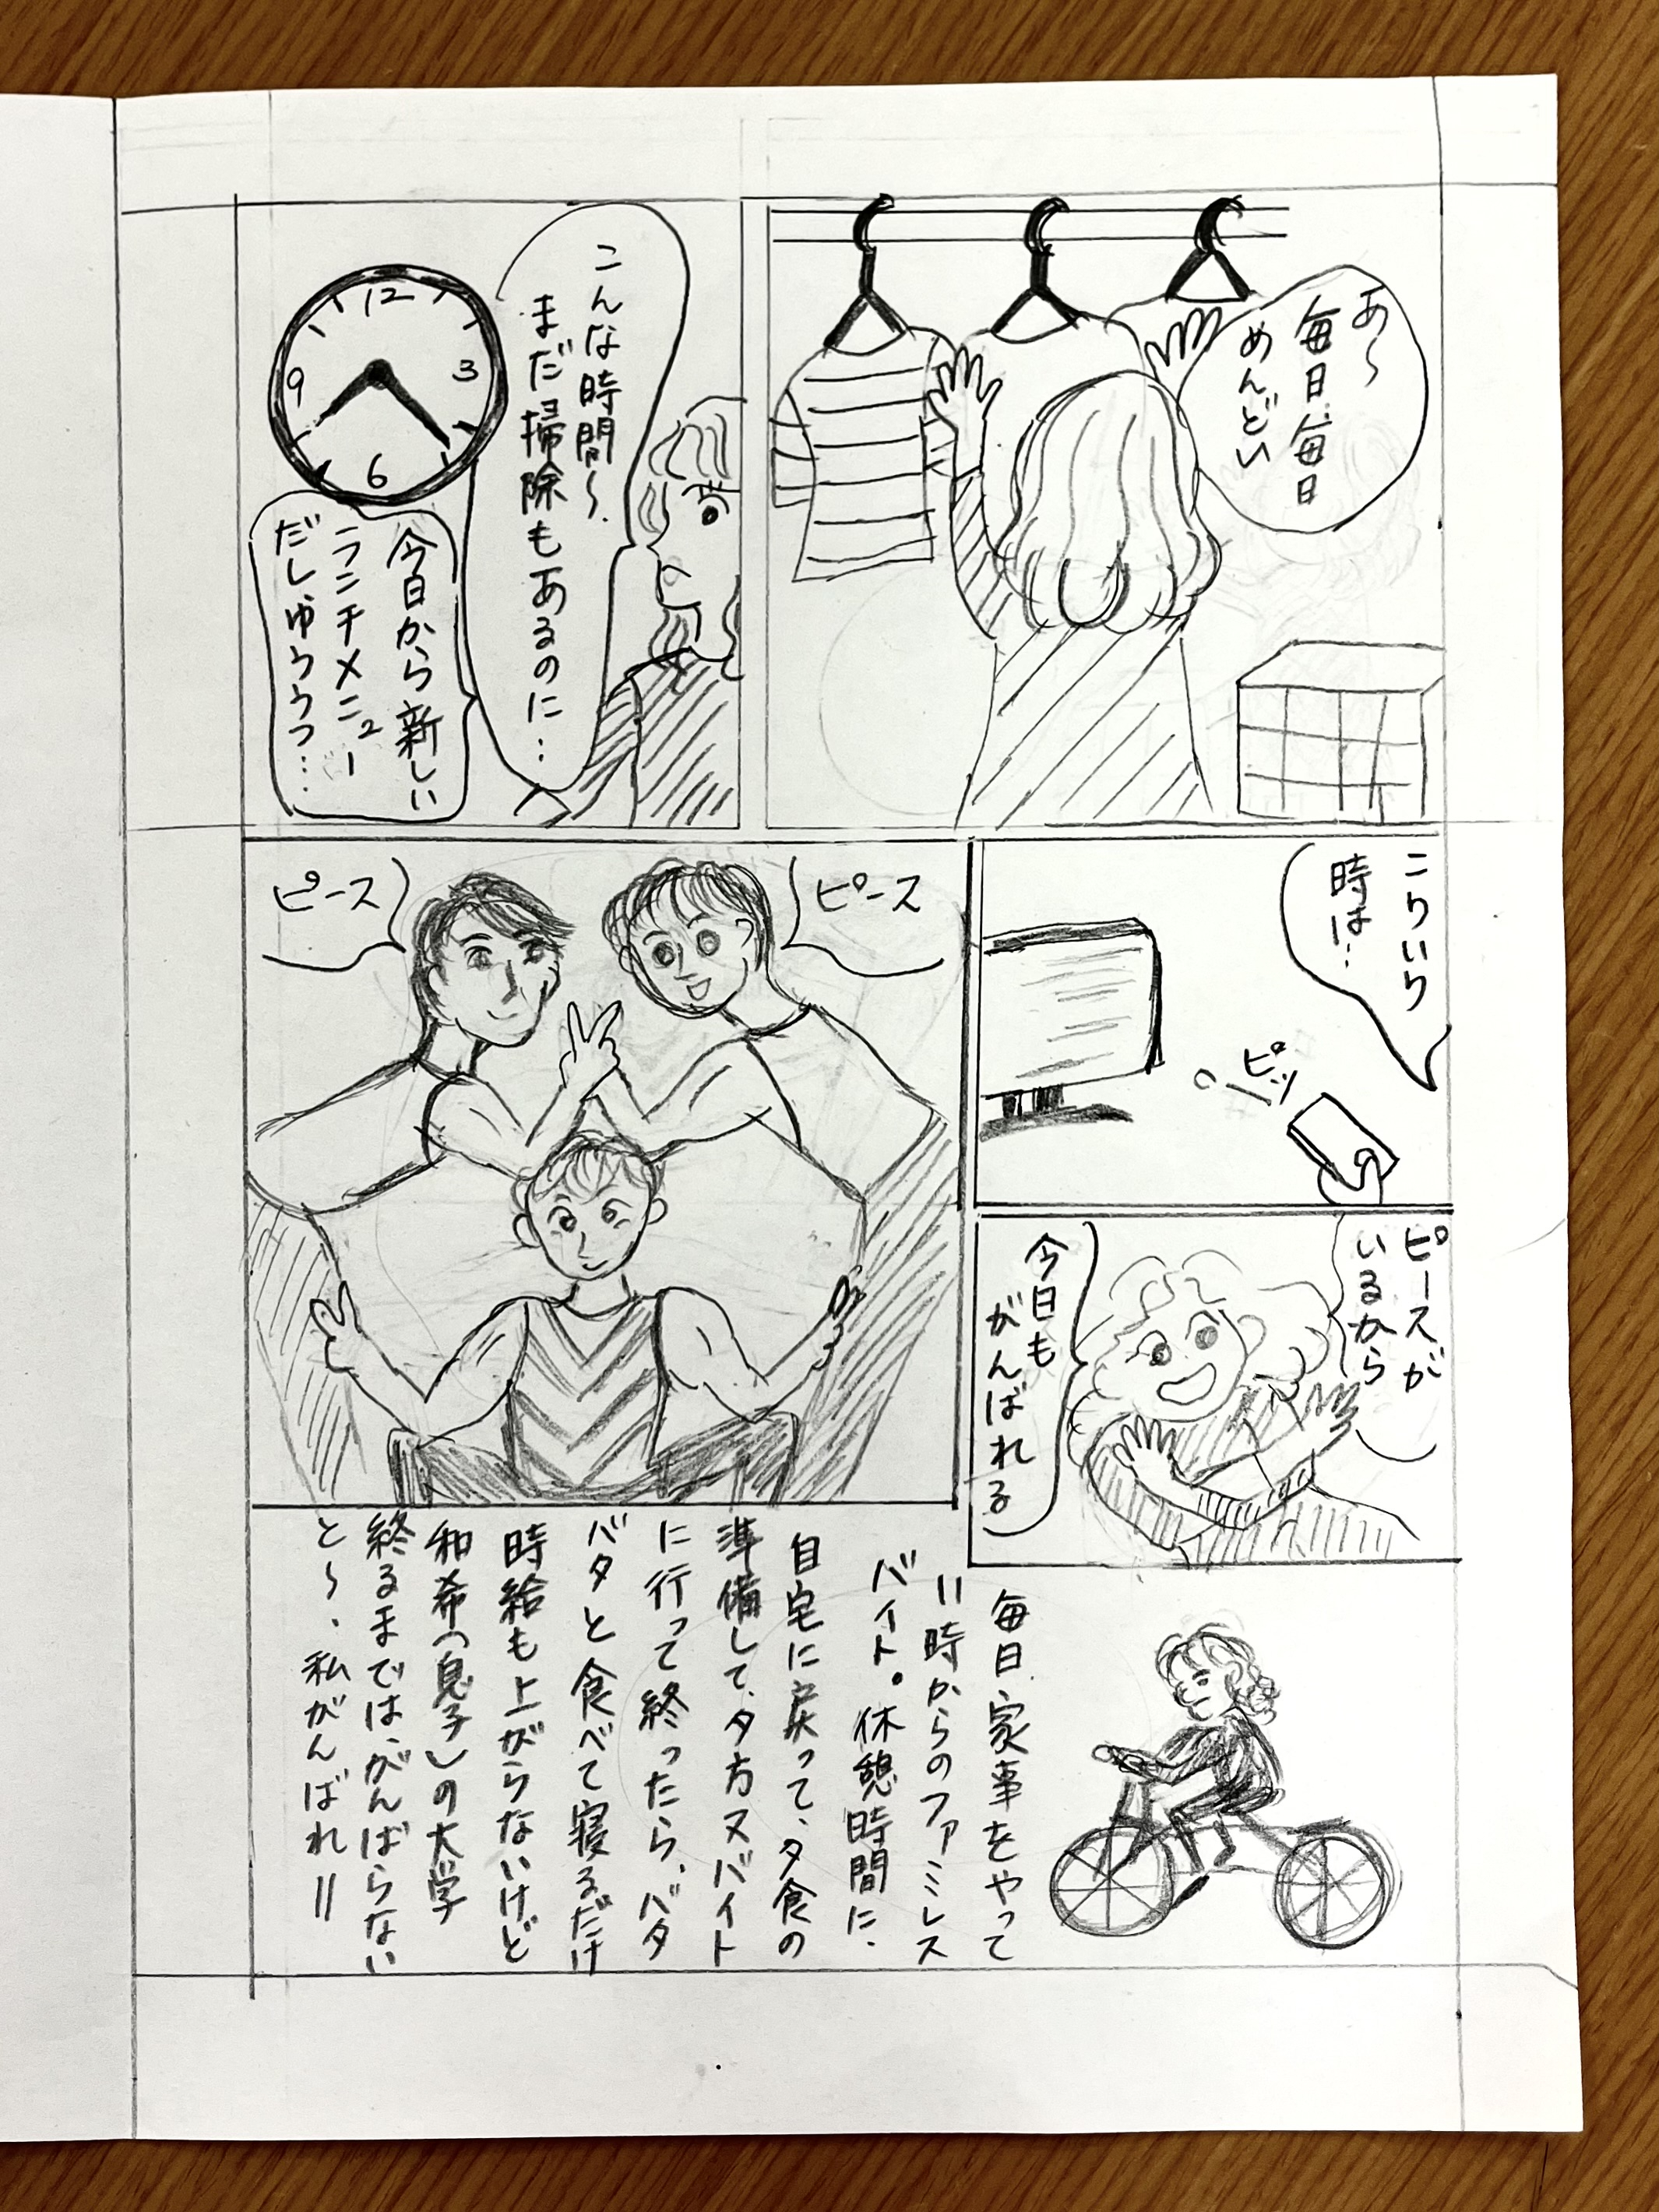 あ〜
毎日毎日
めんどい
こんな時間〜
まだ掃除もあるのに…
12
3
6
9
今日から新しい
ランチメニュー
だしゅうぅぅ…
こういう
時は…
ピッ
ピース
ピース
ピースが
いるから
今日も
がんばれる
毎日、家事をやって
11時からのファミレス
バイト。休憩時間に、
自宅に戻って、夕食の
準備して、夕方又バイト
に行って終ったら、バタ
バタと食べて寝るだけ
時給も上がらないけど
和希(息子)の大学
終るまでは、がんばらない
と〜、私がんばれ!!